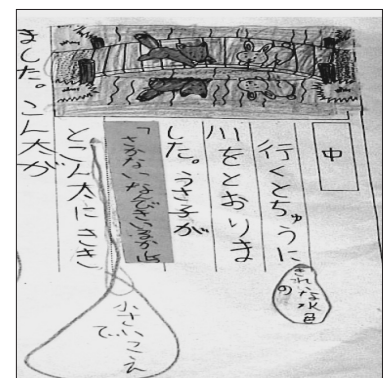 中
行くとちゅうに
きれいな
の
川をとおりま
した。うさ子が
「さかな
小さいこえ
で
とこん太にきき
ました。こん太が